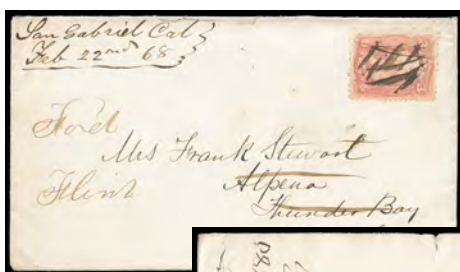 San Gabriel Cal
Feb 22nd 68
Ford
Mrs Frank Stewart
Flint
Alpena
Thunder Bay